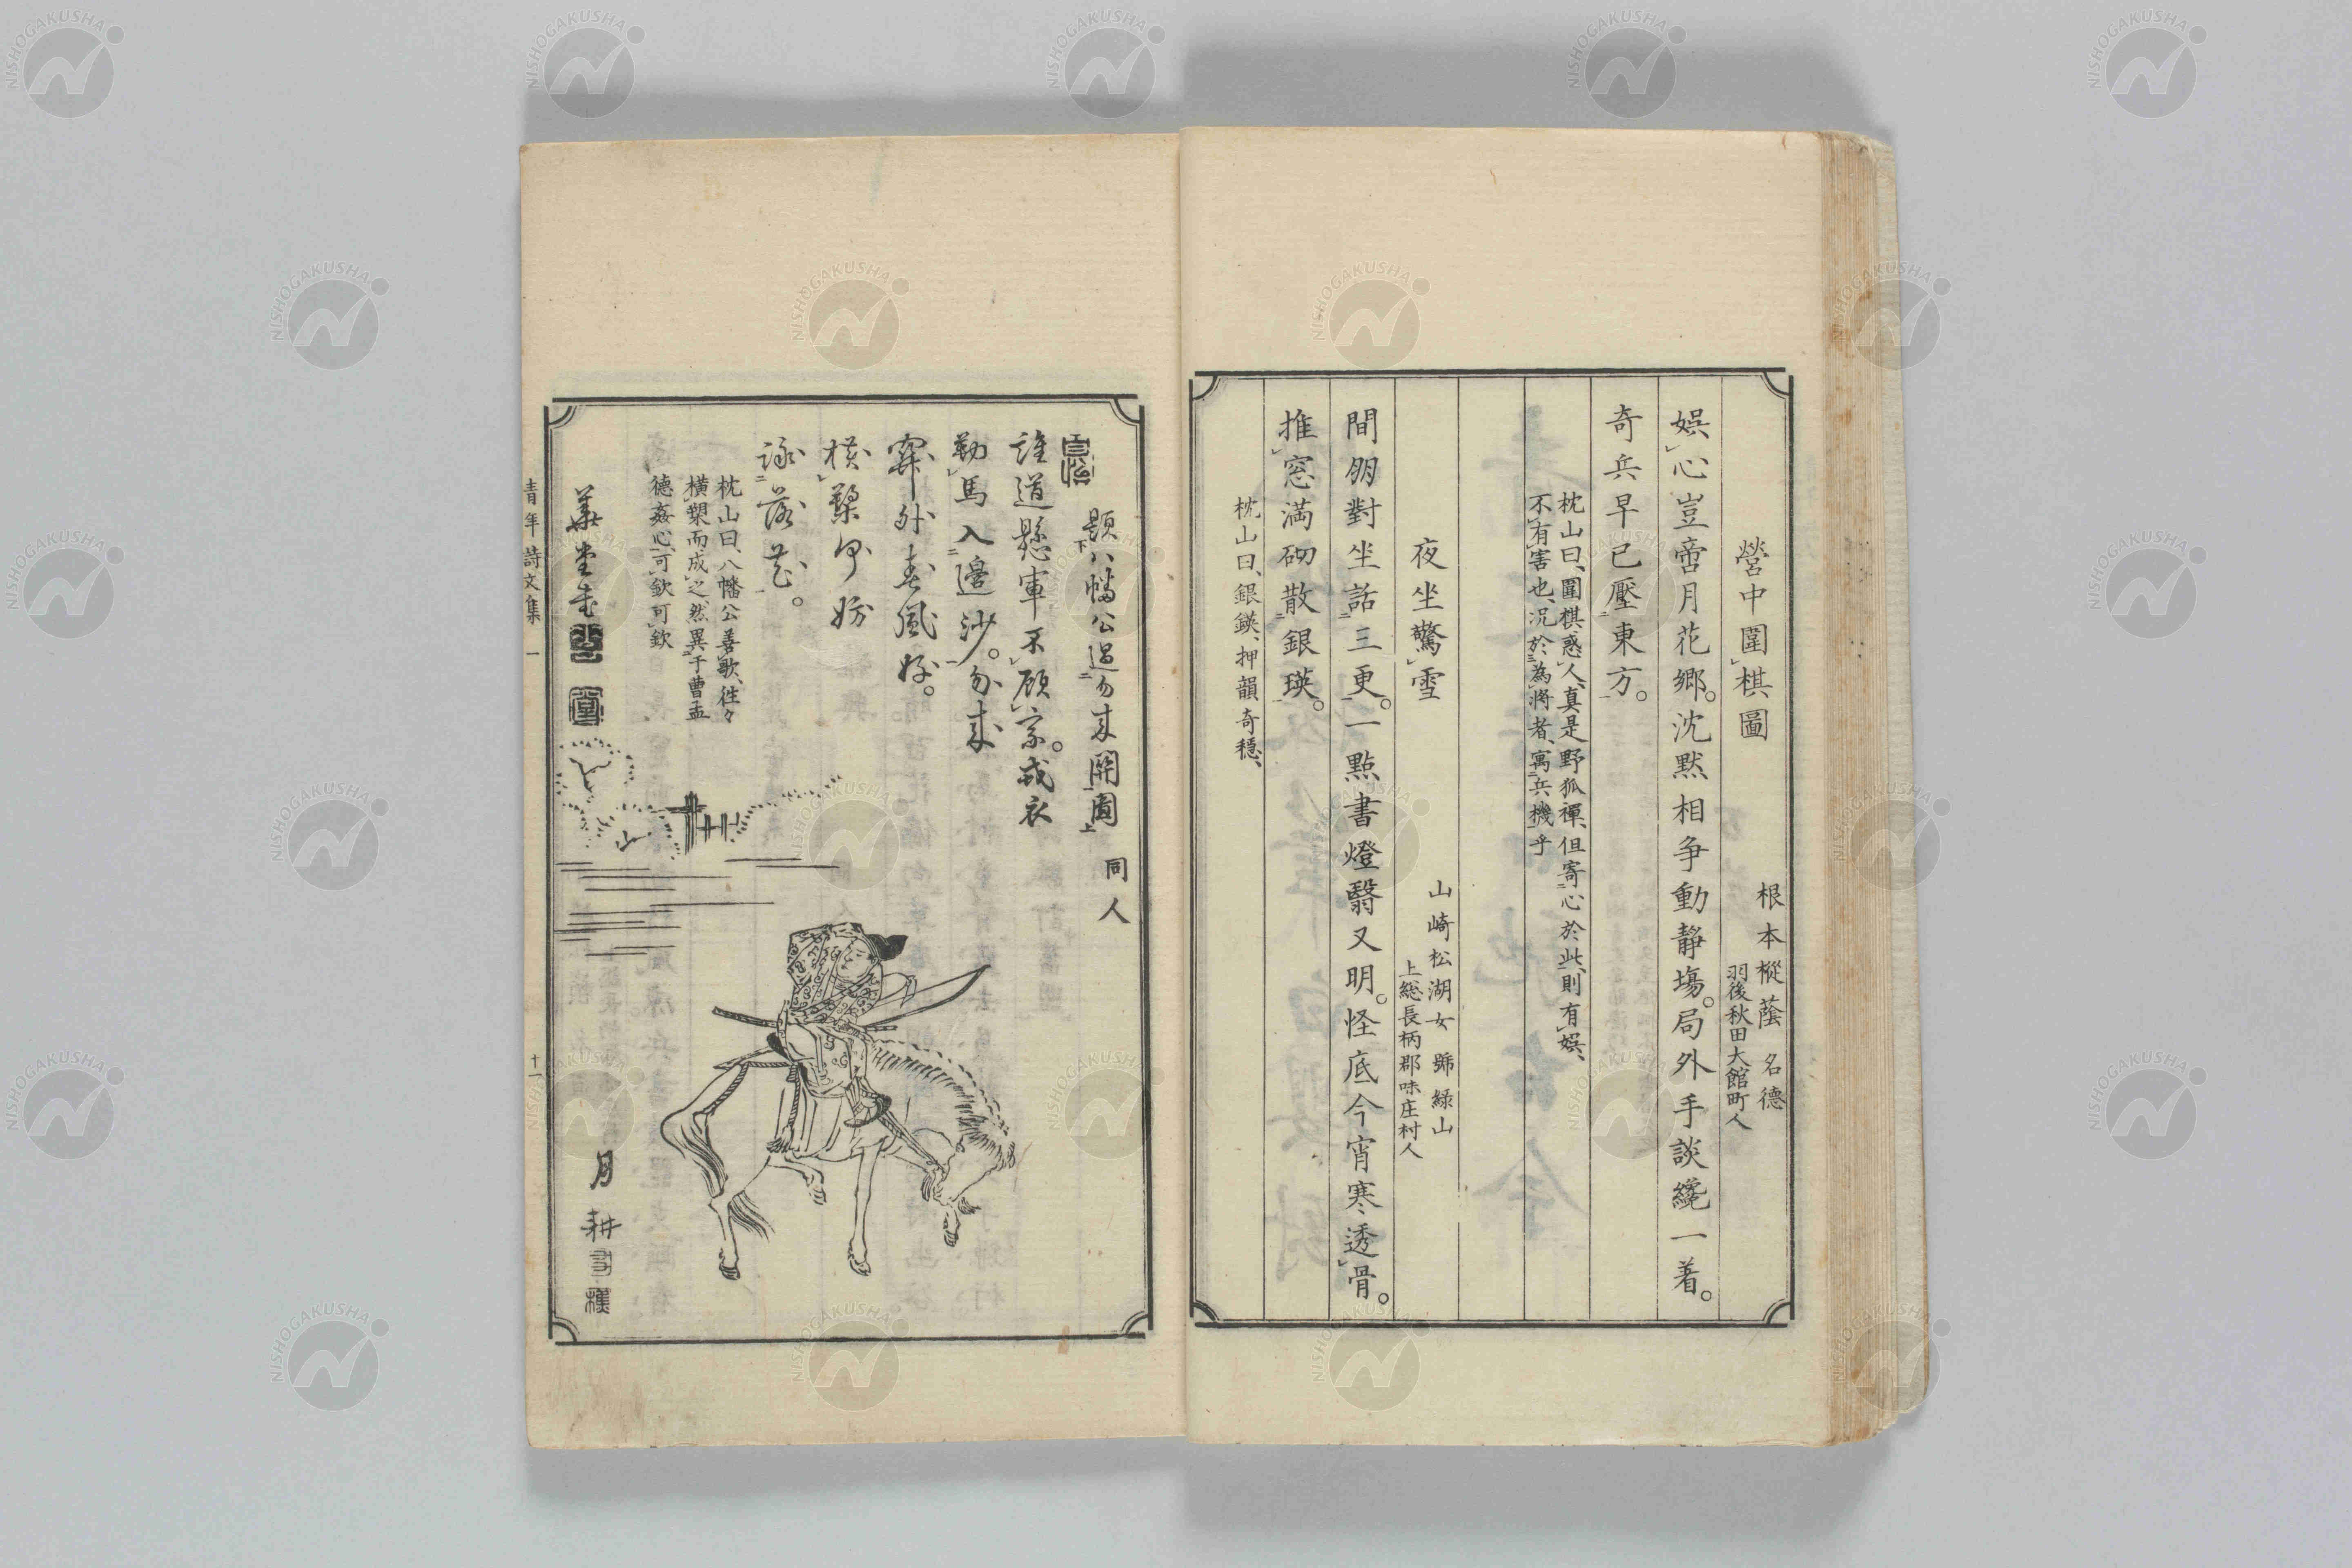 營中圍棋圖
根本樅蔭 名德
羽後秋田大館町人
娯心豈啻月花鄉。沈黙相争動靜塲。局外手談纔一着。
奇兵早已壓東方。
枕山曰、圍棋惑人、真是野狐禪、但寄心於此、則有娯、
不有害也、况於為將者、寓兵機乎
夜坐驚雪
山崎松湖女 號綠山
上総長柄郡味庄村人
間朋對坐話三更。一點書燈翳又明。怪底今宵寒透骨。
推窓満砌散銀瑛。
枕山曰、銀鍈、押韻奇穩、
題八幡公過勿来關圖
同人
誰道懸軍不顧家。戎衣
勒馬入邊沙。勿来
關外春風好。
横槊何妨
詠落花。
枕山曰、八幡公善歌、徃々
横槊而成之、然異于曹孟
德姦心、可欽可欽
華堂書
月耕
青年詩文集 一
十一
NISHOGAKUSHA